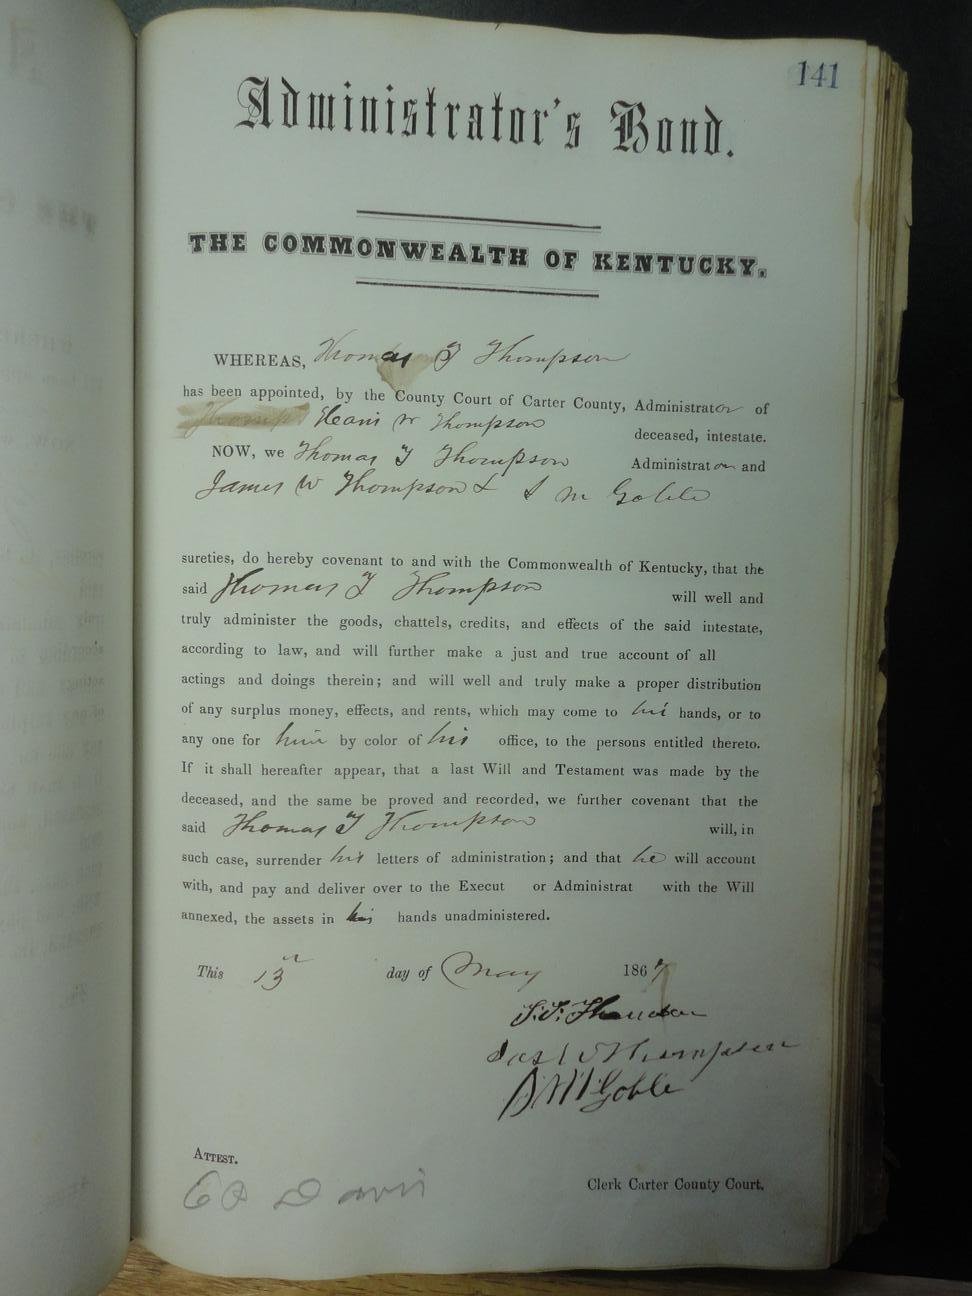 141
Administrator's Bond.
THE COMMONWEALTH OF KENTUCKY.
WHEREAS, Thomas T Thompson
has been appointed, by the County Court of Carter County, Administrator of
W Thompson deceased, intestate.
NOW, we Thomas T Thompson Administrator and
James W Thompson & S M Goble
sureties, do hereby covenant to and with the Commonwealth of Kentucky, that the
said Thomas T Thompson will well and
truly administer the goods, chattels, credits, and effects of the said intestate,
according to law, and will further make a just and true account of all
actings and doings therein; and will well and truly make a proper distribution
of any surplus money, effects, and rents, which may come to his hands, or to
any one for him by color of his office, to the persons entitled thereto.
If it shall hereafter appear, that a last Will and Testament was made by the
deceased, and the same be proved and recorded, we further covenant that the
said Thomas T Thompson will, in
such case, surrender his letters of administration; and that he will account
with, and pay and deliver over to the Execut or Administrat with the Will
annexed, the assets in his hands unadministered.
This 13 day of May 1867
Jas W Thompson
Goble
ATTEST.
Davis
Clerk Carter County Court.